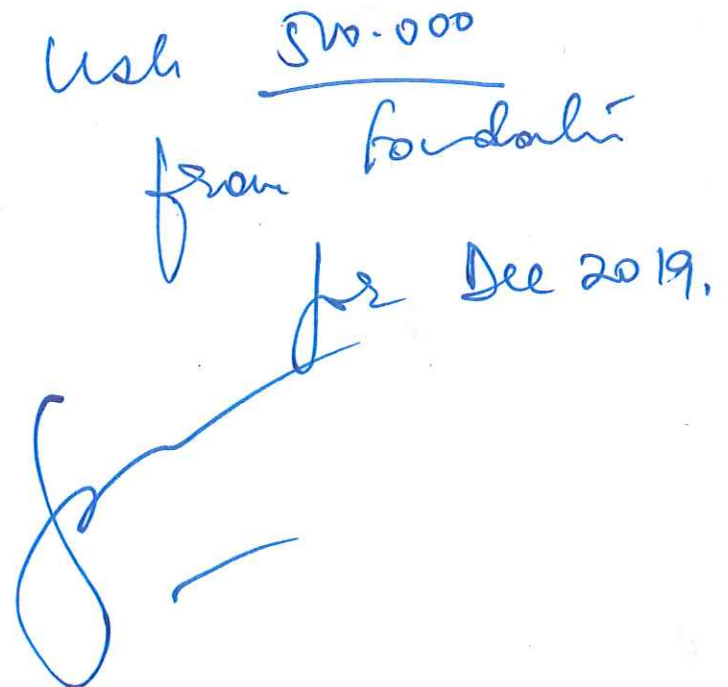 Ush 500.000
from Foundation
for Dec 2019.